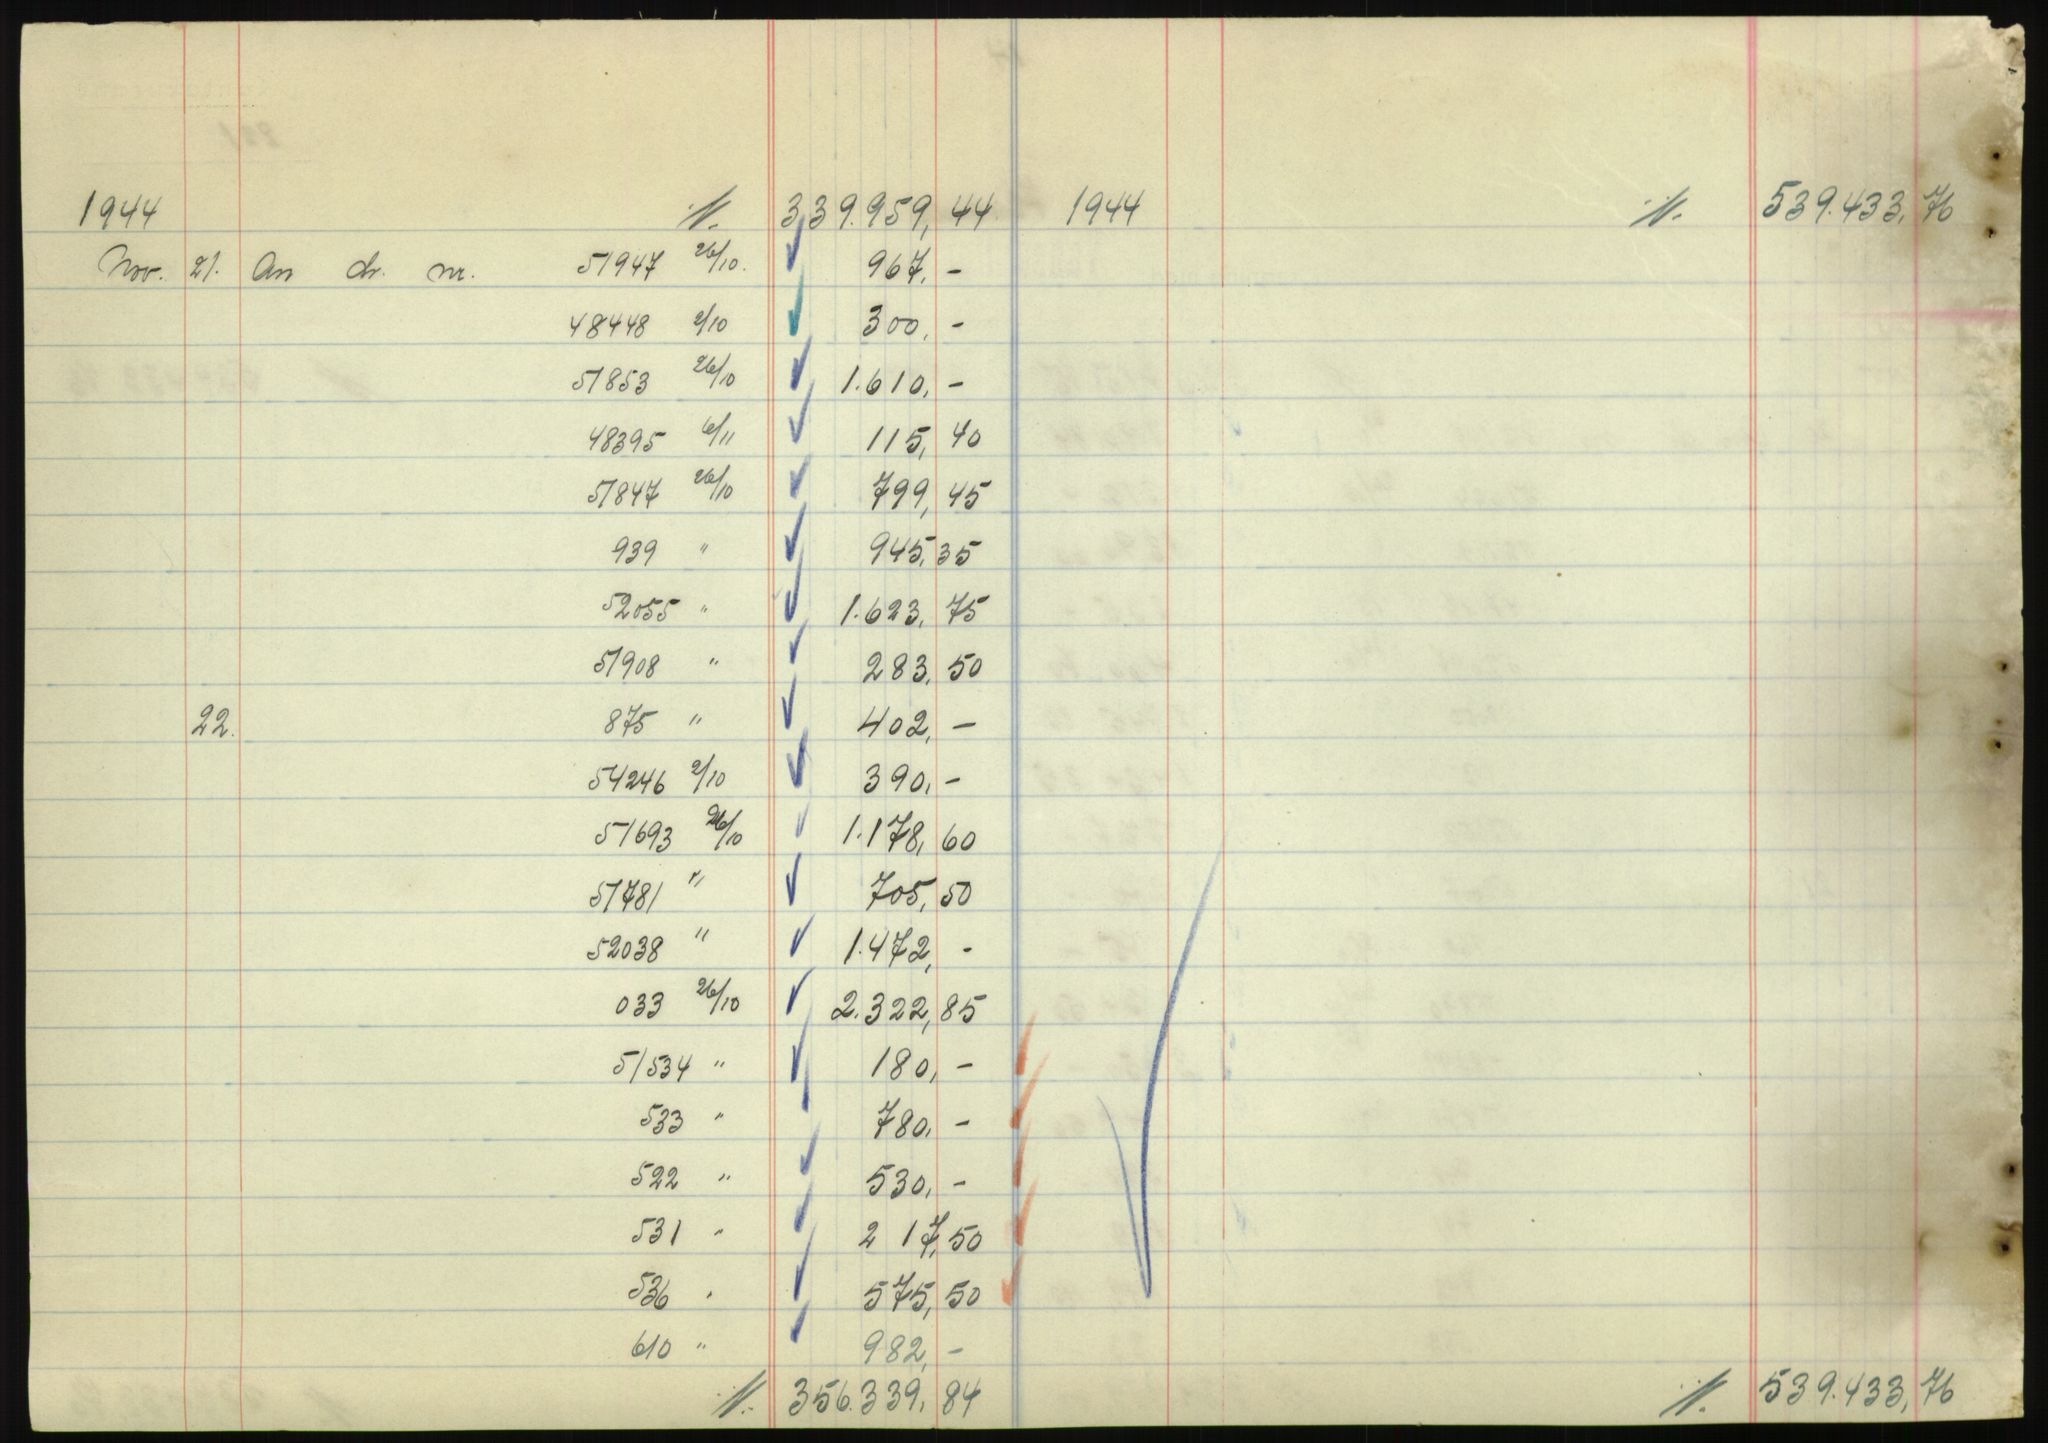 1944 339.959,44 1944 539.433,76
Nov. 21. An ch. nr. 51947 26/10. 967,-
48448 2/10 300,-
51853 26/10 1.610,-
48395 6/11 115,40
51847 26/10 799,45
939 " 945,35
52055 " 1.623,75
51908 " 283,50
22. 875 " 402,-
54246 2/10 390,-
51693 26/10 1.178,60
51781 " 705,50
52038 " 1.472,-
033 26/10 2.322,85
51534 " 180,-
533 " 780,-
522 " 530,-
531 " 217,50
536 " 575,50
610 " 982,-
356.339,84 539.433,76